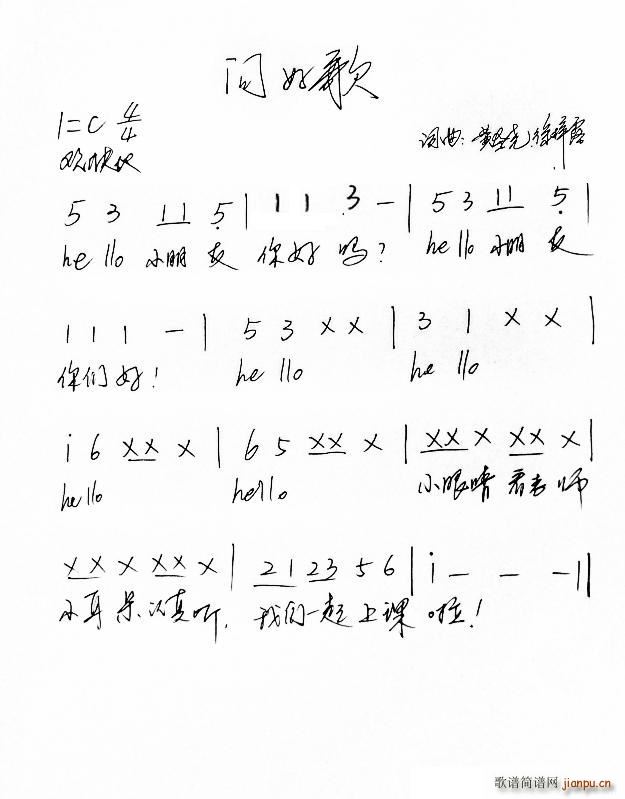 问好歌
1=C 4/4
欢快地
词曲:
5 3 1 1 5 | 1 1 3 - | 5 3 1 1 5 |
hello 小朋友 你好吗? hello 小朋友
1 1 1 - | 5 3 x x | 3 1 x x |
你们好! hello hello
i 6 x x x | 6 5 x x x | x x x x x x |
hello hello 小眼睛 看老师
x x x x x x | 2 1 2 3 5 6 | i - - - ||
小耳朵认真听, 我们一起上课啦!
歌谱简谱网 jianpu.cn